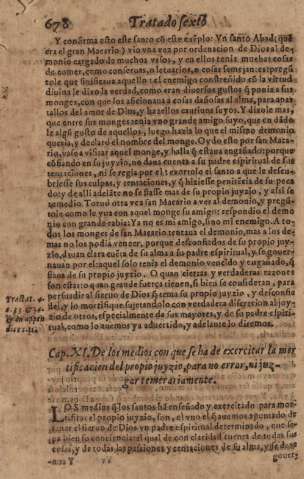 678 Tratado sexto
Y confirma esto este santo cõ este exẽplo: Vn santo Abad (que
era el gran Macario) vio vna vez por ordenacion de Dios al de-
monio cargado de muchos vasos, y en ellos tenia muchas cosas
de comer, como conseruas, o letuarios, o cosas
le que
diuina le dixo la verdad, como eran diuersos gustos q̃ ponia a sus
monges, con que los aficionaua a cosas dañosas al alma, para apar
tallos del amor de Dios, y hazellos captiuos suyos. Y dixole mas,
que entre sus monges tenia vno grande amigo suyo, que en dãdo
le algũ gusto de aquellos, luego hazia lo que el mismo demonio
queria, y declarò el nombre del monge. Oydo esto por san Maca-
rio, vase a visitar aquel monge, y halla q̃ estaua engañado, porque
cõfiando en su juyzio, no daua cuenta a su padre espiritual de sus
tentaciones, ni se regia por el: exortole el santo a que le descu-
briesse sus culpas, y tentaciones, y q̃ hiziesse penitẽcia de su peca
do: y de alli adelãte no se fiasse mas de su propio juyzio, y assi se
remedio. Tornò otra vez san Macario a ver al demonio, y pregũ-
tole como le yua con aquel monge su amigo: respondio el demo
nio con grande rabia: Ya no es mi amigo, sino mi enemigo. A to-
dos los monges de san Macario tentaua el demonio, mas a los de-
mas no los podia vencer, porque desconfiados de su propio juy-
zio, dauan clara cuẽta de su alma a su padre espiritual, y se gouer-
nauan por el: aquel solo tenia el demonio vencido y engañado, q̃
fiaua de su propio juyzio. O quan ciertas y verdaderas razones
son estas: o quan grande fuerça tienen, si bien se consideran, para
persuadir al sieruo de Dios q̃ tema su propio juyzio, y desconfie
del, y lo mortifique sujetandolo con verdadera discrecion al juy-
zio de otros, especialmente de sus mayores, y de su padre espiri-
tual, como lo auemos ya aduertido, y adelante lo diremos.
Tract. 4.
Cap. XI. De los medios con que se ha de exercitar la mor
tificacion del propio juyzio, para no errar, ni juz-
gar temerariamente.
LOS medios q̃ los santos hã enseñado y exercitado para mor-
tificar el propio juyzio, son, el vno el q̃ auemos apuntado, de
tener el sieruo de Dios vn padre espiritual determinado, que se-
pa bien su conciencia: al qual dè con claridad cuenta de todas sus
cosas, y de todas las passiones y tentaciones de su alma, y se dexe
gouer